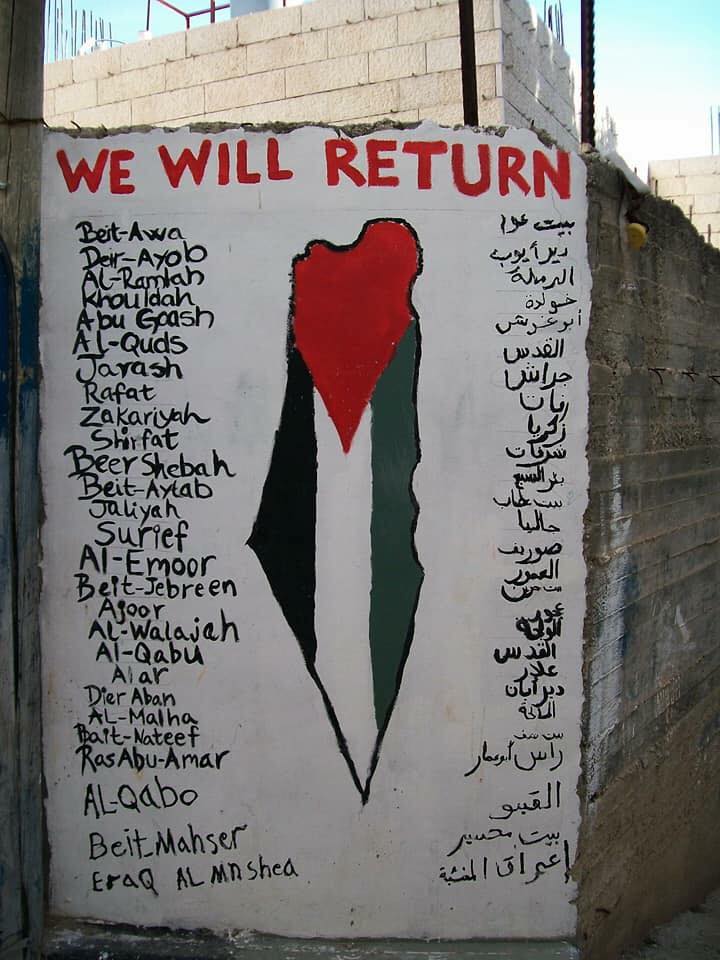 WE WILL RETURN
Beit-Awa
Deir-Ayob
Al-Ramlah
Khouldah
Abu Goash
Al-Quds
Jarash
Rafat
Zakariyah
Shirfat
Beer Shebah
Beit-Aytab
Jaliyah
Surief
Al-Emoor
Beit-Jebreen
Ajoor
Al-Walajah
Al-Qabu
Alar
Dier Aban
AL-Malha
Bait-Nateef
Ras Abu-Amar
AL-Qabo
Beit Mahser
EraQ AL MnShea
بيت عوا
دير أيوب
الرملة
خولدة
القدس
جراش
زكريا
شرفات
بئر السبع
جاليا
صوريف
العمور
عجور
الولجة
القدس
علار
دير أبان
المالحة
راس أبو عمار
القبو
بيت محسير
إعراق المنشية